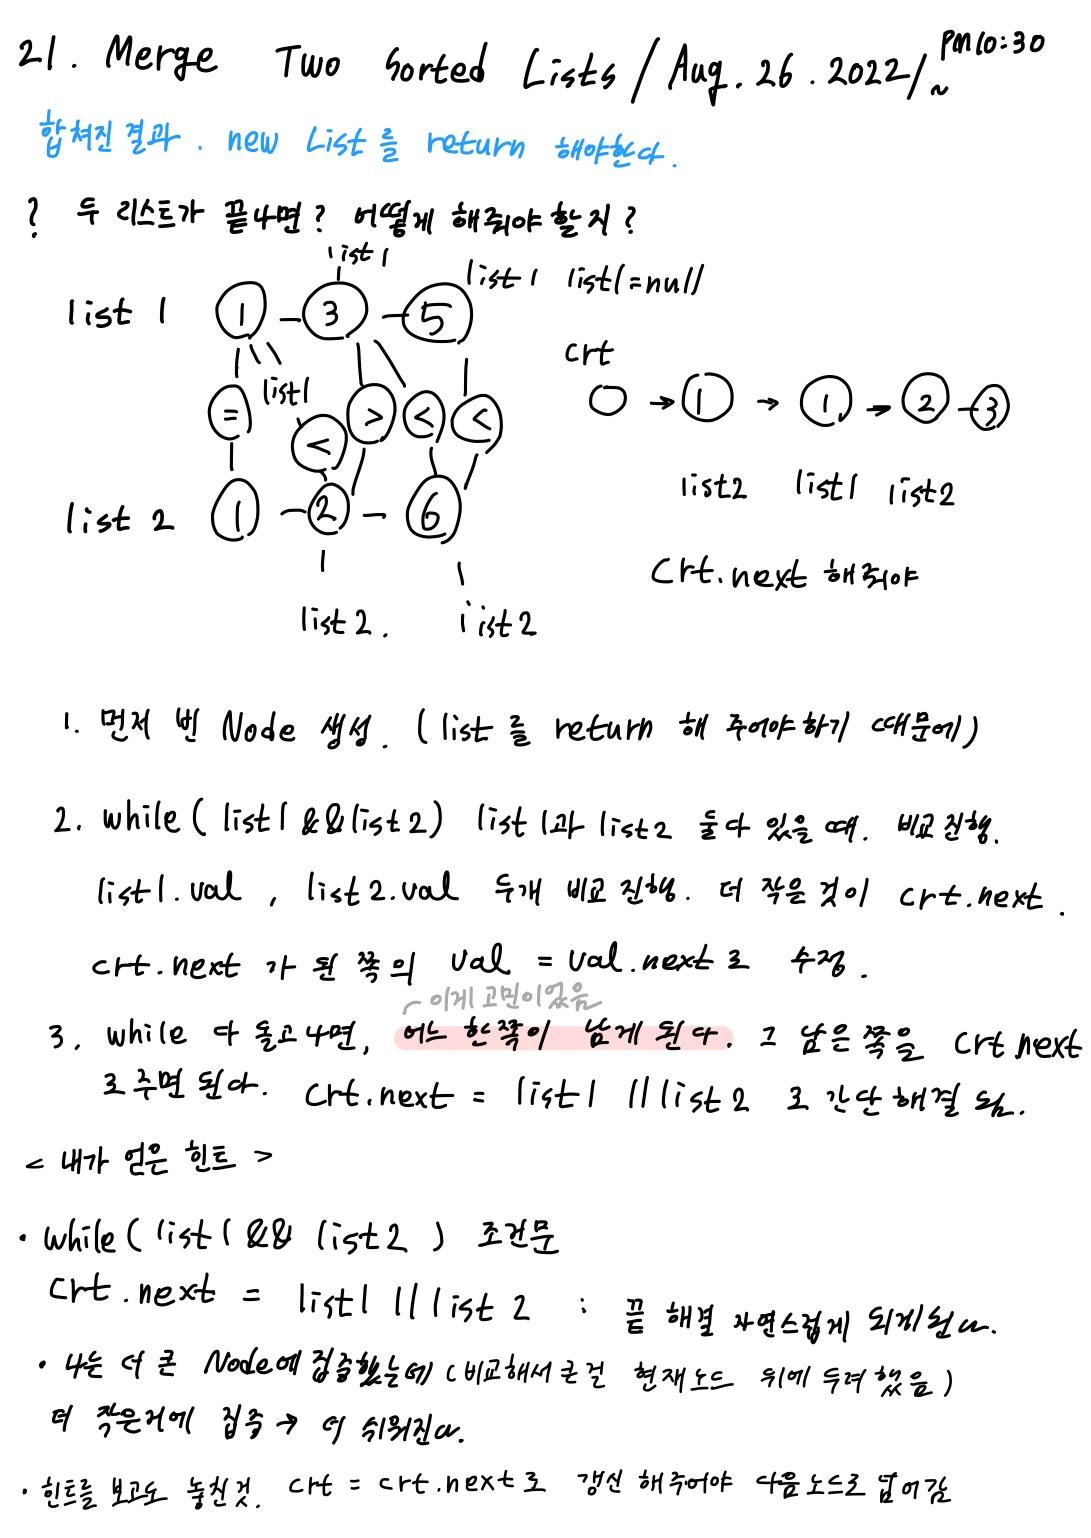 21. Merge Two Sorted Lists / Aug. 26. 2022 / PM 10:30 ~
합쳐진 결과. new List를 return 해야한다.
? 두 리스트가 끝나면? 어떻게 해줘야 할지?
list 1
list 1 list1=null
list 1 1 3 5
crt
list1
= < > < <
1 1 2 3
list2 list1 list2
list 2 1 2 6
crt.next 해줘야
list 2. list 2
1. 먼저 빈 Node 생성. (list를 return 해 주어야하기 때문에)
2. while( list1 && list2) list1과 list2 둘다 있을 때. 비교 진행.
list1.val , list2.val 두개 비교 진행. 더 작은 것이 crt.next.
crt.next 가 된 쪽의 val = val.next로 수정.
이게 고민이었음
3. while 다 돌고나면, 어느 한쪽이 남게 된다. 그 남은 쪽을 crt.next
로 주면 된다. crt.next = list1 || list2 로 간단 해결 됨.
< 내가 얻은 힌트 >
· while( list1 && list2 ) 조건문
crt.next = list1 || list2 : 끝 해결 자연스럽게 되게된다.
· 나는 더 큰 Node에 집중했는데 (비교해서 큰걸 현재노드 뒤에 두려 했음)
더 작은거에 집중 → 더 쉬워진다.
· 힌트를 보고도 놓친것. crt = crt.next로 갱신 해주어야 다음노드로 넘어감